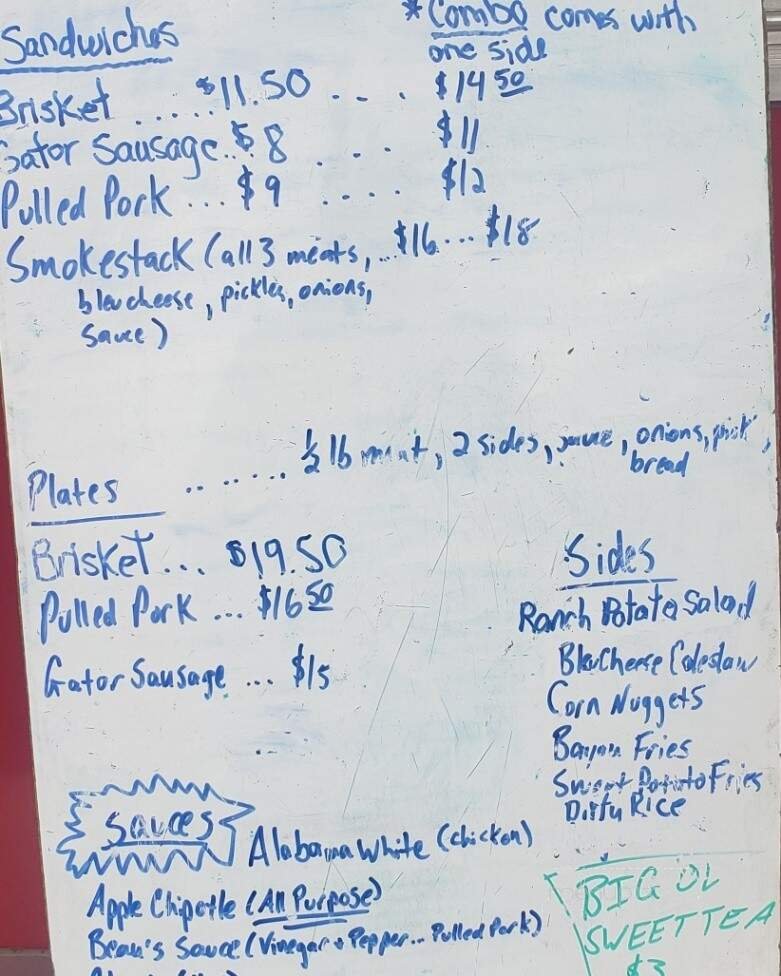 Sandwiches
*Combo comes with
one side
Brisket ...... $11.50 ... . $14 50
Gator Sausage... $8 .... $11
Pulled Pork ... $9 .... $12
Smokestack (all 3 meats, ...$16 ... $18
bleu cheese, pickles, onions,
sauce)
Plates ........ 1/2 lb meat, 2 sides, sauce, onions, pick,
bread
Brisket ... $19.50
Pulled Pork ... $16 50
Gator Sausage ... $15
Sides
Ranch Potato Salad
BleuCheese Coleslaw
Corn Nuggets
Bayou Fries
Sweet Potato Fries
Dirty Rice
Sauces
Alabama White (chicken)
Apple Chipotle (All Purpose)
Beau's Sauce (Vinegar + Pepper... Pulled Pork)
BIG OL
SWEET TEA
$3